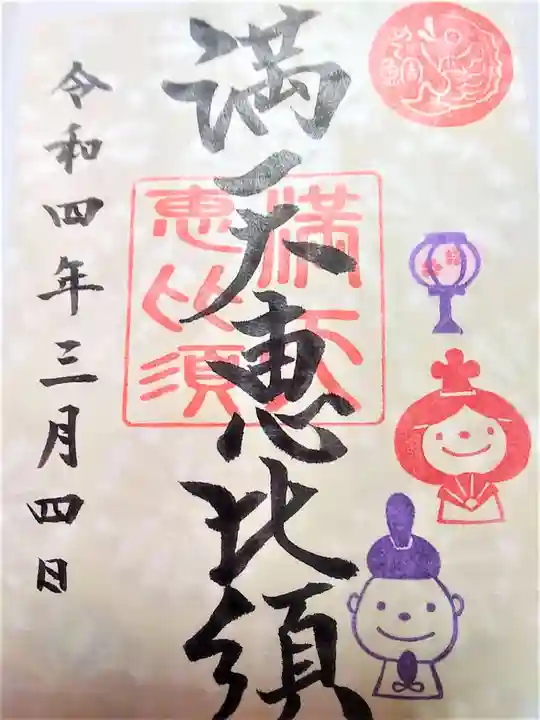 満天恵比須
満天
恵比須
令和四年三月四日